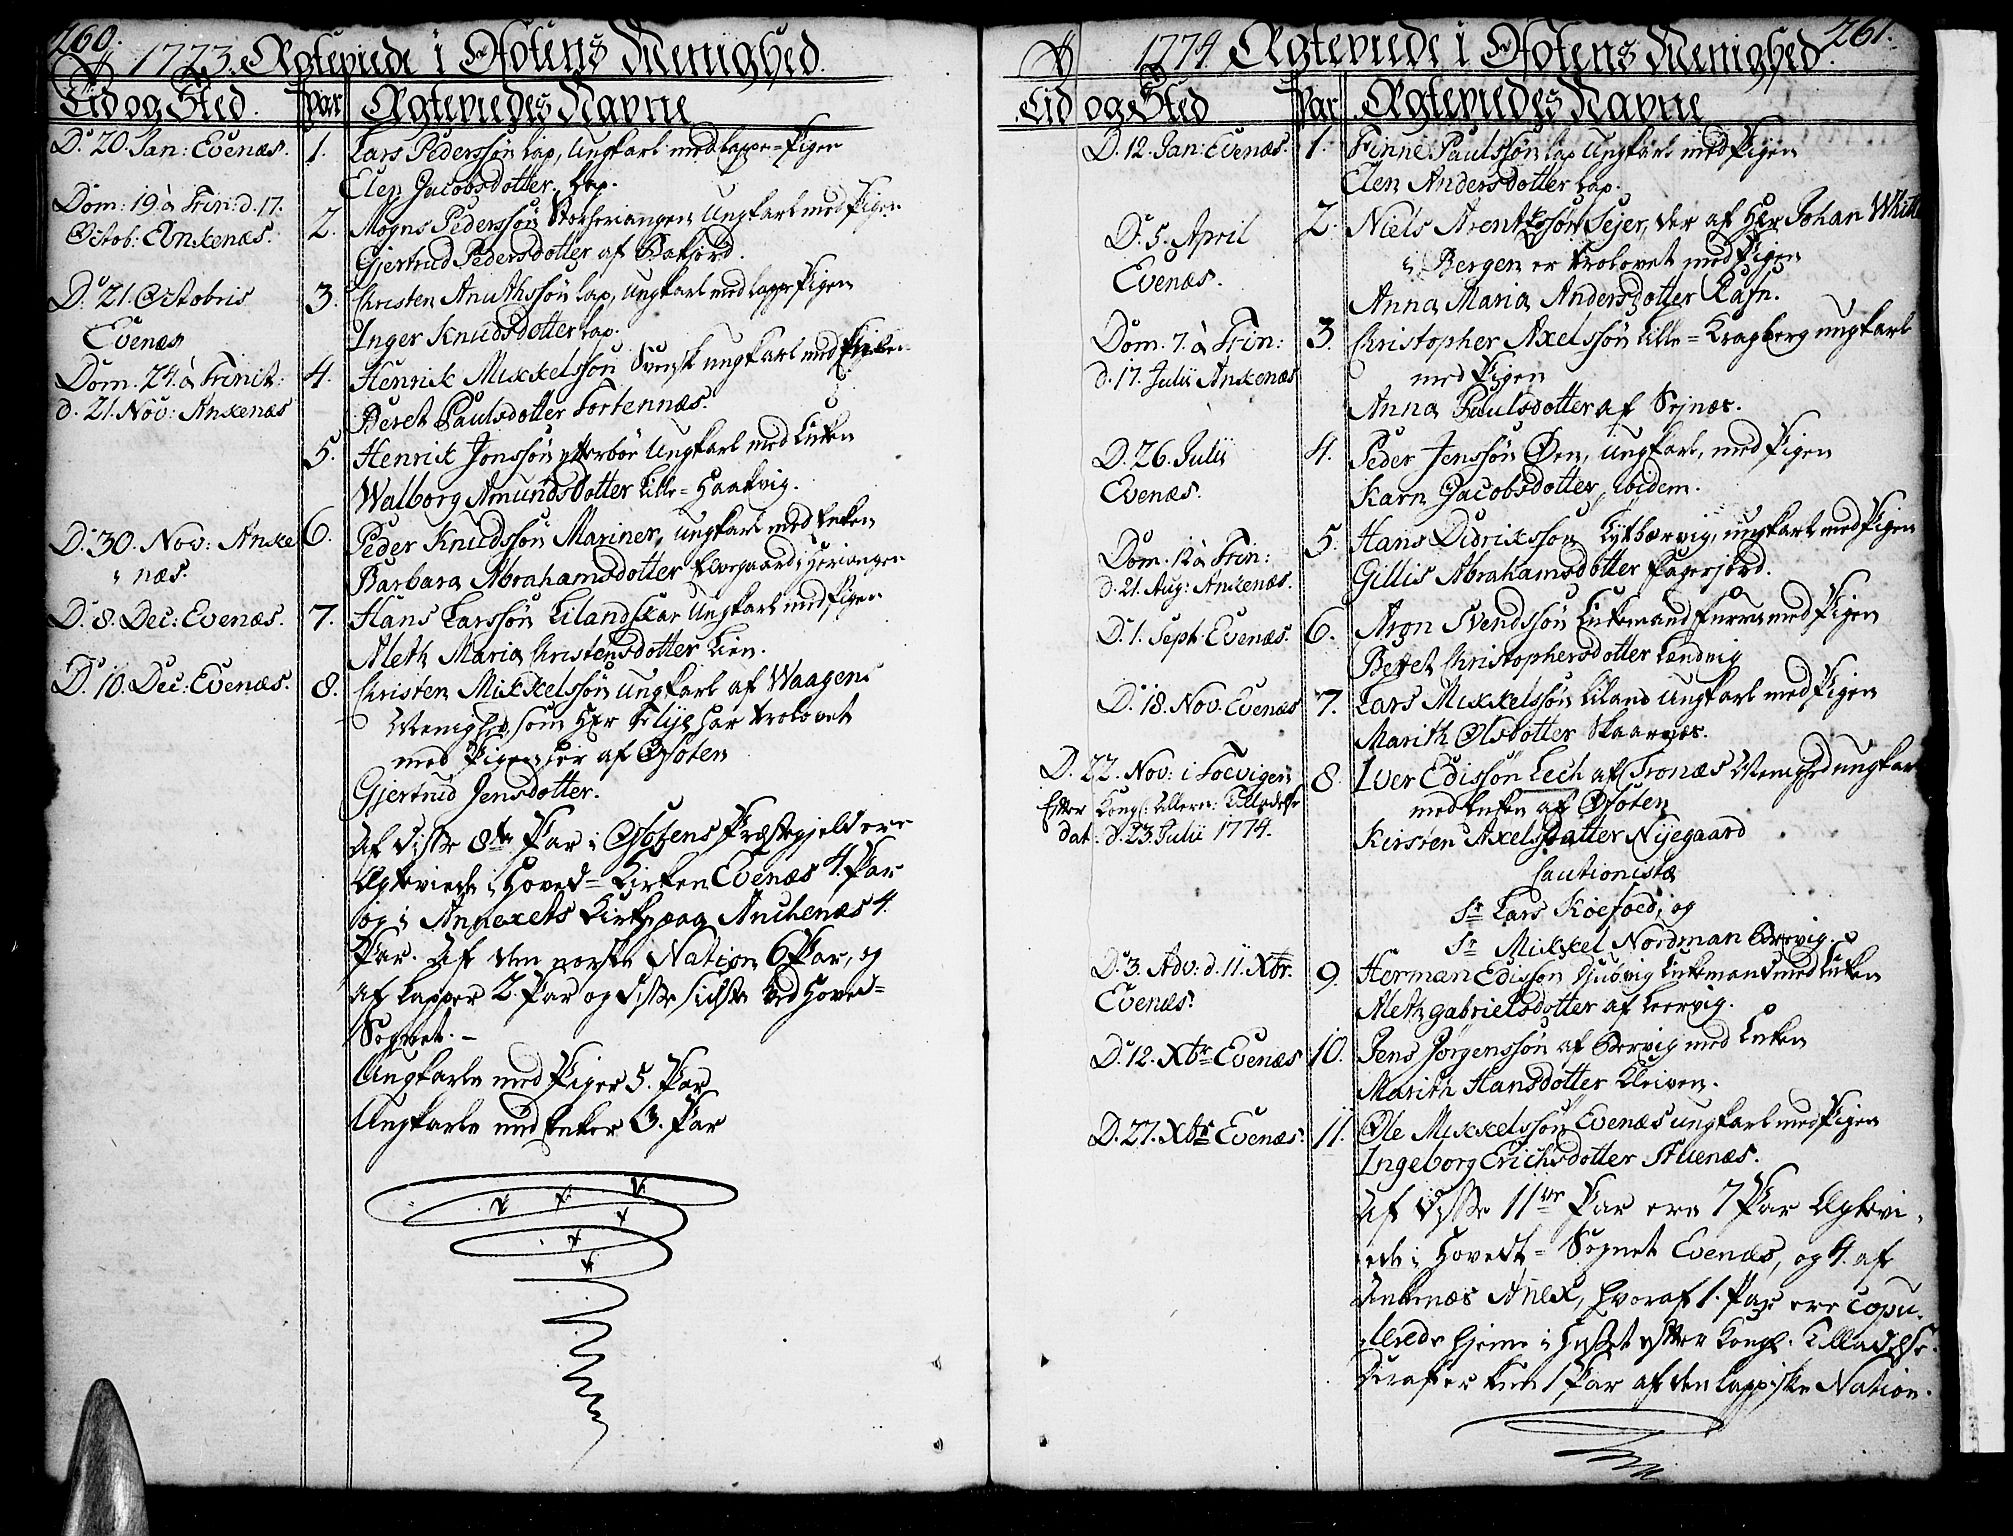 260.
Ao 1773. Ægteviede i Ofotens Menighed.
Tid og Sted. Par Ægteviedes Navne
D. 20. Jan: Evenæs. 1. Lars Pederssøn Lap, Ungkarl med Lappe-Pigen
Elen Jacobsdotter Lap.
Dom: 19 à Trin: d. 17. Octob: Ankenæs. 2. Mogns Pederssøn Storheriangen Ungkarl med Pigen
Gjertrud Pedersdotter af
D. 21. Octobris Evenæs 3. Christen Anuthssøn Lap, Ungkarl med Lappe Pigen
Inger Knudsdotter Lap.
Dom. 24. à Trinit: d. 21. Nov: Ankenæs 4. Henrik Mikkelssøn Svensk ungkarl med
Beret Paulsdotter Fortennæs.
5. Henrik Jonssøn ytterbør Ungkarl med Enken
Walborg Amundsdotter Lille-Haakvig.
D. 30. Nov: Anke
næs. 6. Peder Knudssøn Mariner, ungkarl med Enken
Barbara Abrahamsdotter Elvegaard i Heriangen
D. 8. Dec: Evenæs. 7. Hans Larssøn Lilandskar Ungkarl med Pigen
Meth Maria Christensdotter Lien.
D. 10. Dec: Evenæs. 8. Christen Mikkelssøn ungkarl af Waagens
Menighed, som Hr har trolovet
med Pigen her af Ofoten
Gjertrud Jensdotter.
Af disse 8te Par i Ofotens Præstegjeld ere
Ægteviede i Hoved-Kirken Evenæs 4. Par
og i Annexets Kirke paa Anchenæs 4.
Par. Af den norske Nation 6 Par, og
af Lapper 2. Par og disse sidste ved Hoved-
Sognet.-
Ungkarle med Piger 5. Par
Ungkarle med Enker 3. Par
261.
Ao 1774 Ægteviede i Ofotens Menighed.
Tid og Sted Par Ægteviedes Navne
D. 12. Jan: Evenæs. 1. Finne Paulssøn Lap Ungkarl med Pigen
Elen Andersdotter Lap.
D. 5. April
Evenæs. 2. Niels Arentzssøn Sejer, der af Hr Johan
i Bergen er trolovet med Pigen
Anna Maria Andersdotter Rafn.
Dom. 7. à Trin:
d. 17. Julii Ankenæs 3. Christopher Axelssøn Lille-Kragberg ungkarl
med Pigen
Anna Paulsdotter af Sejnæs.
D. 26. Julii
Evenæs. 4. Peder Jenssøn Øen, ungkarl, med Pigen
Karn Jacobsdotter, ibidem.
Dom. 12 à Trin:
d. 21. Aug: Ankenæs. 5. Hans Didrikssøn ungkarl med Pigen
Gillis Abrahamsdotter Fagerjord.
D. 1. Sept. Evenæs. 6. Aron Svendssøn Enkemand med Pigen
Beret Christophersdotter Landvig
D. 18. Nov. Evenæs 7. Lars Mikkelssøn Liland Ungkarl med Pigen
Marith Olsdotter Skaarnæs.
D. 22. Nov: i
Efter Kongl. Allern: Tilladelse
dat. d. 23. Julii 1774. 8. Iver Edissøn Lech af Tronæs Menighed ungkarl
med Enken af Ofoten
Kirsten Axelsdatter Nijegaard
Cautionistæ
Sr Lars Koefoed, og
Sr Mikkel Nordman
D. 3. Adv: d. 11. Xbr.
Evenæs. 9. Herman Edissøn Enkemand med Enken
Meth Gabrielsdotter af Leervig.
D. 12. Xbr Evenæs 10. Jens Jørgenssøn af med Enken
Marith Hansdotter Kleiven.
D. 27. Xbr Evenæs. 11. Ole Mikkelssøn Evenæs ungkarl med Pigen
Ingeborg Erichsdotter Stuenæs.
Af disse 11ve Par ere 7 Par Ægtevi-
ede i Hovedt-Sognet Evenæs, og 4. af
Ankenæs Anex, hvoraf 1. Par ere copu-
lerede hjeme i Huset efter Kongl. Tilladelse.
Deraf er kun 1 Par af den lappiske Nation.